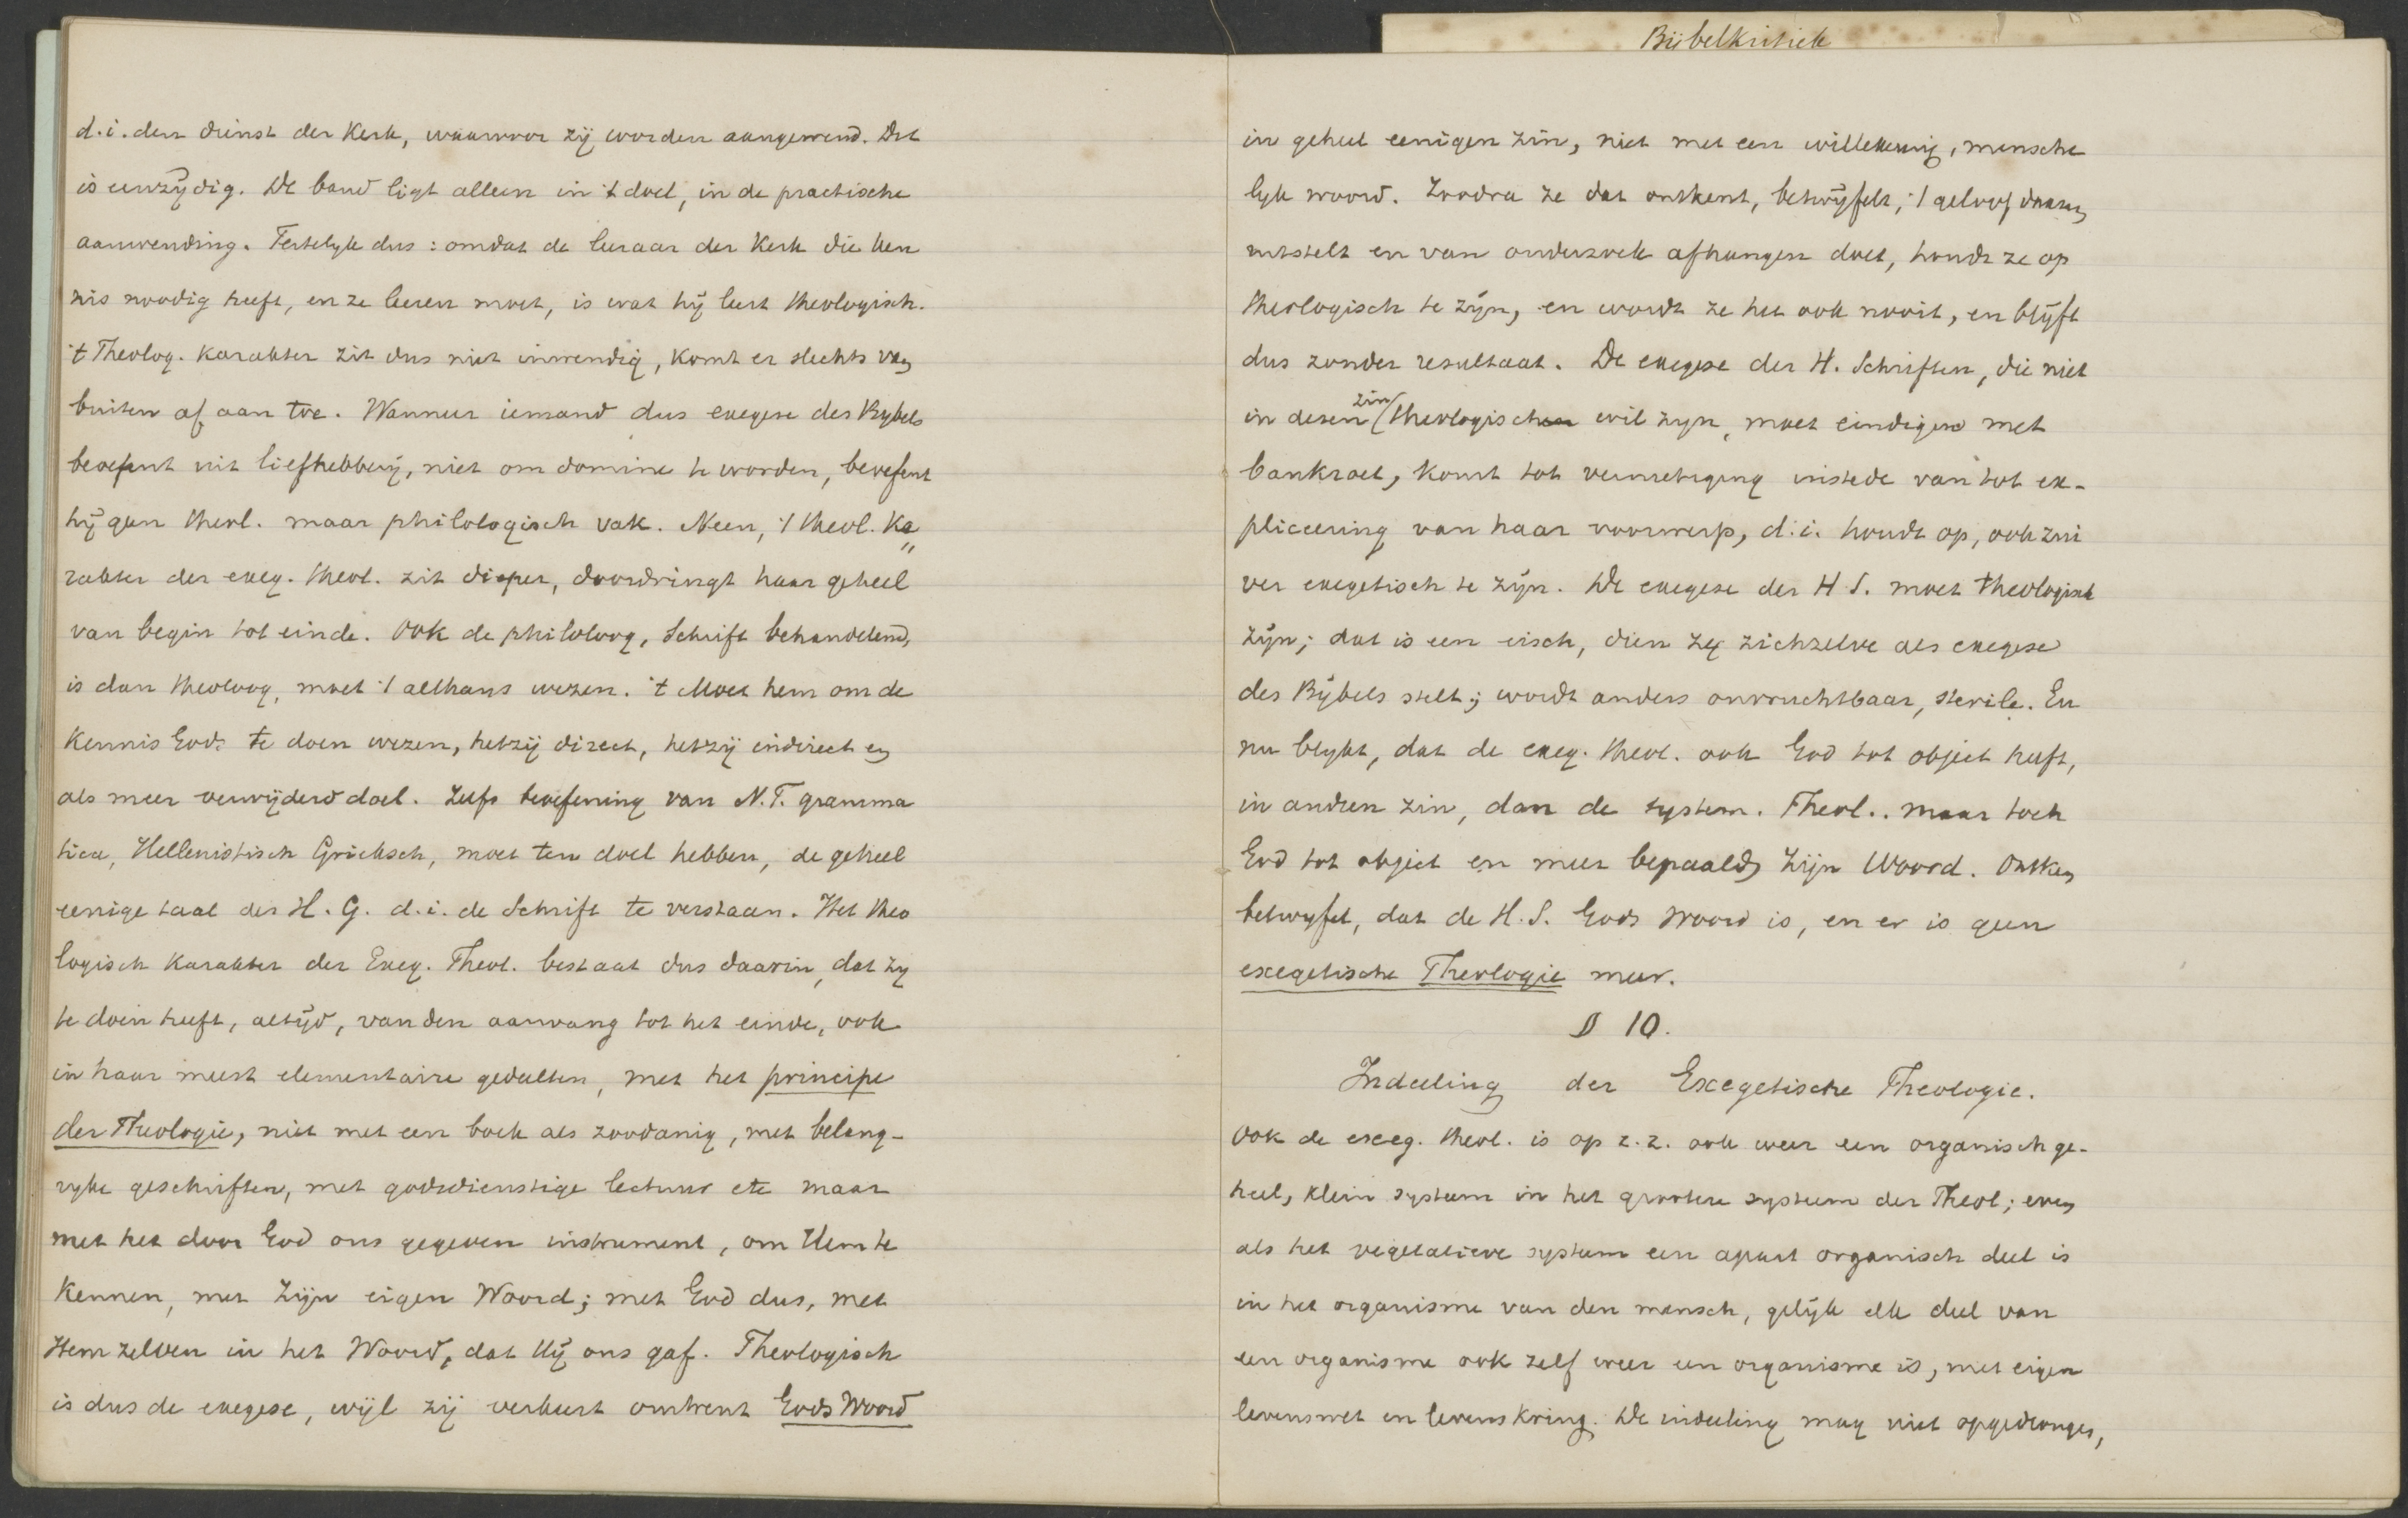 d.i. den dienst der Kerk, waarvoor zij worden aangewend. Dit
is eenzijdig. De band ligt alleen in 't doel, in de practische
aanwending. Feitelijk dus : omdat de leeraar der Kerk die ken
nis noodig heeft, en ze leeren moet, is wat hij leert theologisch.
't Theolog. karakter zit dus niet inwendig, komt er slechts van
buiten af aan toe. Wanneer iemand dus exegese des Bybels
beoefent uit liefhebberij, niet om domine te worden, beoefent
hij geen theol. maar philologisch vak. Neen, 't theol. Ka„
rakter der exeg. theol. zit dieper, doordringt haar geheel
van begin tot einde. Ook de philoloog, Schrift behandelend,
is dan theoloog, moet 't althans wezen. 't Moet hem om de
kennis Gods te doen wezen, hetzij direct, hetzij indirect en
als meer verwijderd doel. Zelfs beoefening van N.T. gramma
tica, Hellenistisch Grieksch, moet ten doel hebben, de geheel
eenige taal des H. G. d.i. de Schrift te verstaan. Het theo
logisch karakter der Exeg. Theol. bestaat dus daarin, dat zy
te doen heeft, altijd, van den aanvang tot het einde, ook
in haar meest elementaire gedeelten, met het principe
der Theologie, niet met een boek als zoodanig, met belang-
ryke geschriften, met godsdienstige lectuur etc maar
met het door God ons gegeven instrument, om Hem te
kennen, met Zijn eigen Woord; met God dus, met
Hem zelven in het Woord, dat Hij ons gaf. Theologisch
is dus de exegese, wijl zij verkeert omtrent Gods Woord
Bijbelkritiek
in geheel eenigen zin, niet met een willekeurig, mensche
lyk woord. Zoodra ze dat ontkent, betwijfelt, 't geloof daaraan
uitstelt en van onderzoek afhangen doet, houdt ze op
theologisch te zijn, en wordt ze het ook nooit, en blijft
dus zonder resultaat. De exegese der H. Schriften, die niet
in dezen zin theologisch wil zyn, moet eindigen met
bankroet, komt tot vernietiging instede van tot ex-
pliceering van haar voorwerp, d.i. houdt op, ook zui
ver exegetisch te zijn. De exegese der H.S. moet theologisch
zijn; dat is een eisch, dien zy zichzelve als exegese
des Bijbels stelt; wordt anders onvruchtbaar, sterile. En
nu blykt, dat de exeg. theol. ook God tot object heeft,
in andren zin, dan de system. Theol.. maar toch
God tot object en meer bepaald Zijn Woord. Ontken
betwyfel, dat de H.S. Gods Woord is, en er is geen
exegetische Theologie meer.
§ 10.
Indeeling der Exegetische Theologie.
Ook de exeg. theol. is op z.z. ook weer een organisch ge-
heel, klein systeem in het grootere systeem der Theol; even
als het vegetatieve systeem een apart organisch deel is
in het organisme van den mensch, gelijk elk deel van
een organisme ook zelf weer een organisme is, met eigen
levenswet en levenskring. De indeeling mag niet opgedrongen,